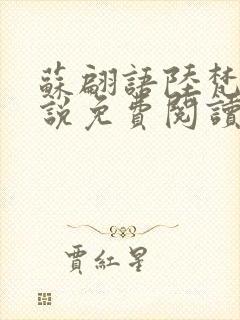 蘇翩語陸梵
說免費閱讀
賈紅星